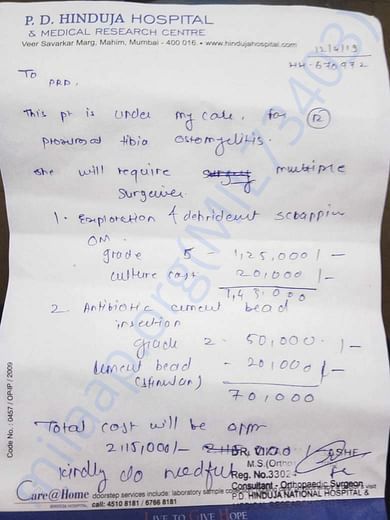 P. D. HINDUJA HOSPITAL
& MEDICAL RESEARCH CENTRE
Veer Savarkar Marg, Mahim, Mumbai - 400 016. • www.hindujahospital.com
12/4/19
HH-670972
To
PRD.
This pt is under my care, for
proximal tibia ostomyelitis.
12
she will require multiple
surgeries.
1. Exploration & debrident scrappin
OM.
grade 5 - 1,25,000/-
culture cost 20,000/-
1,45,000
2. Antibiotic cement bead
insertion
grade 2 - 50,000.1-
cement bead - 20,000/-
(stimulan)
70,000
Total cost will be apprr
2,15,000/-
kindly do needful
DR.
M.S.(Ortho
Reg. No.3302
Consultant - Orthopaedic Surgeon
P.D. HINDUJA NATIONAL HOSPITAL &
Care@Home doorstep services include: laboratory sample
call: 4510 8181 / 6766 8181
LIVE TO GIVE HOPE
Code No.: 0457 / OP-IP / 2009
milaap.org(MIL73403)